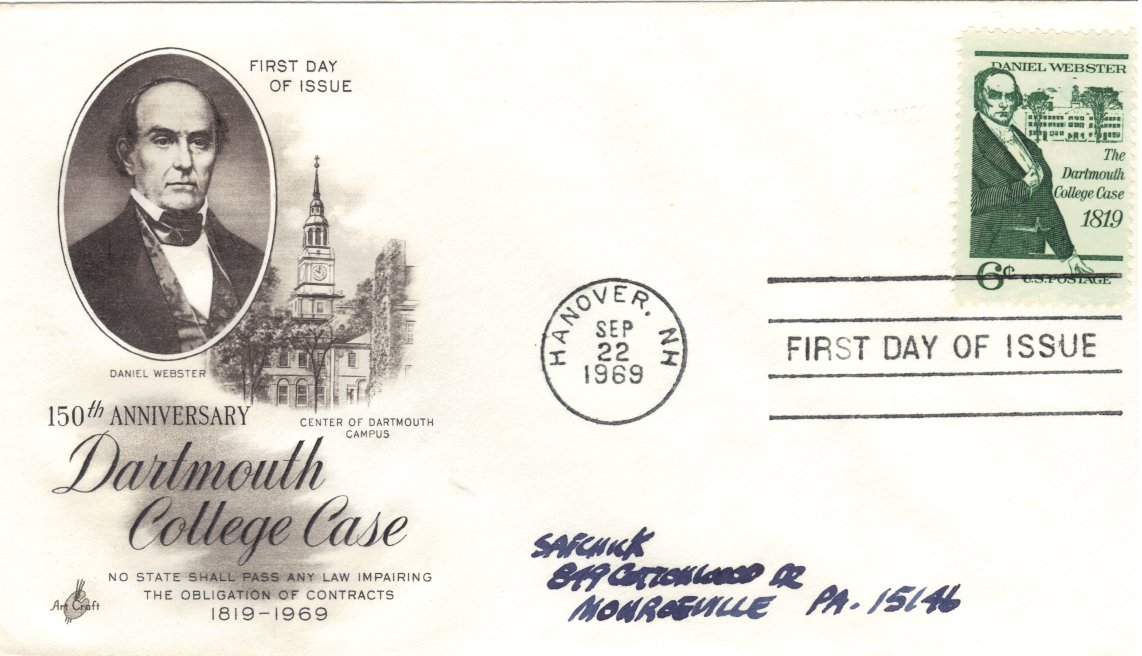 FIRST DAY
OF ISSUE
DANIEL WEBSTER
CENTER OF DARTMOUTH
CAMPUS
150th ANNIVERSARY
Dartmouth
College Case
NO STATE SHALL PASS ANY LAW IMPAIRING
THE OBLIGATION OF CONTRACTS
1819-1969
Art Craft
DANIEL WEBSTER
The
Dartmouth
College Case
1819
6¢ U.S. POSTAGE
HANOVER, NH
SEP
22
1969
FIRST DAY OF ISSUE
SAFCHICK
849 COTTONWOOD DR
MONROEVILLE PA. 15146